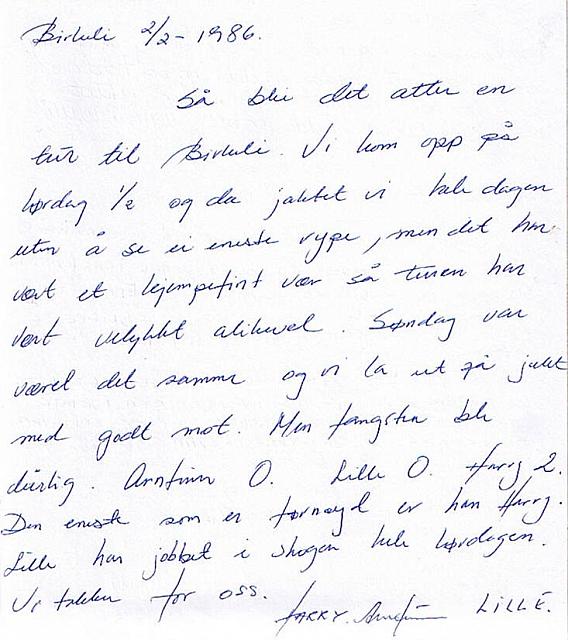 Birkeli 2/2 - 1986.
Så ble det atter en
tur til Birkeli. Vi kom opp på
lørdag 1/2 og da jaktet vi hele dagen
uten å se ei eneste rype, men det har
vært et kjempefint vær så turen har
vært velykket alikevel. Søndag var
været det samme og vi la ut på jakt
med godt mot. Men fangsten ble
dårlig. Arnfinn 0. Lille 0. Harry 2.
Den eneste som er fornøyd er han Harry.
Lille har jobbet i skogen hele lørdagen.
Vi takker for oss.
HARRY. Arnfinn LILLE.